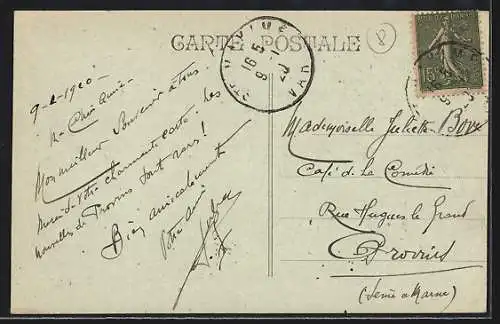 CARTE POSTALE
9-2-1920.
Ma Chère Amie.
Mon meilleur Souvenir à tous
Merci de Votre charmante carte. Les
nouvelles de Provins sont rares!
Bien amicalement
Votre ami
16 5
9 - 1
20
VAR
15
Mademoiselle Juliette Bove
Café de la Comédie
Rue Hugues le Grand
Provins
(Seine et Marne)